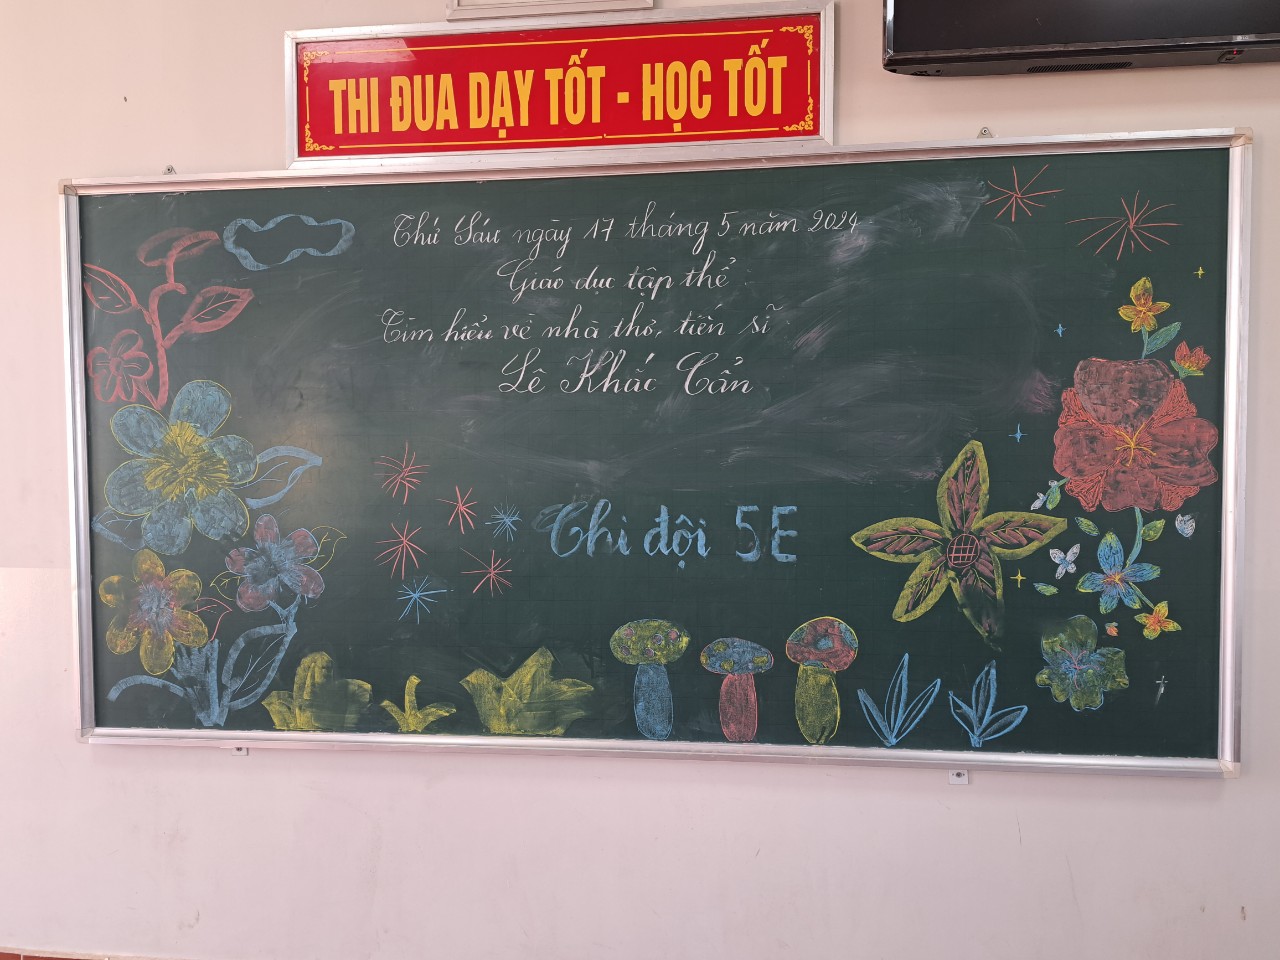 THI ĐUA DẠY TỐT - HỌC TỐT
Thứ Sáu ngày 17 tháng 5 năm 2024
Giáo dục tập thể
Tìm hiểu về nhà thơ, tiến sĩ
Lê Khắc Cẩn
Chi đội 5E